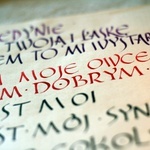 EDYNIE
TWOJĄ I ŁASKĘ
EM TO MI WYSTAR
MOJE OWCE
M · DOBRYM ·
ST MOI
ST · MÓJ · SYN